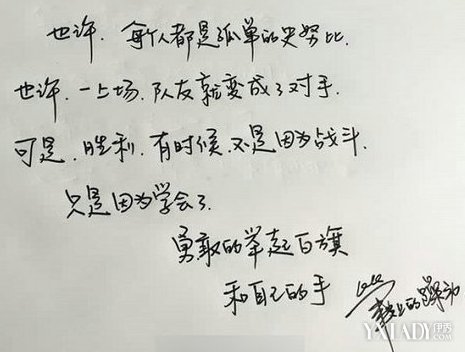 也许.每个人都是孤单的史努比.
也许.一上场.队友就变成了对手.
可是.胜利.有时候.不是因为战斗.
只是因为学会了.
勇敢的举起白旗
和自己的手
YXLADY.COM